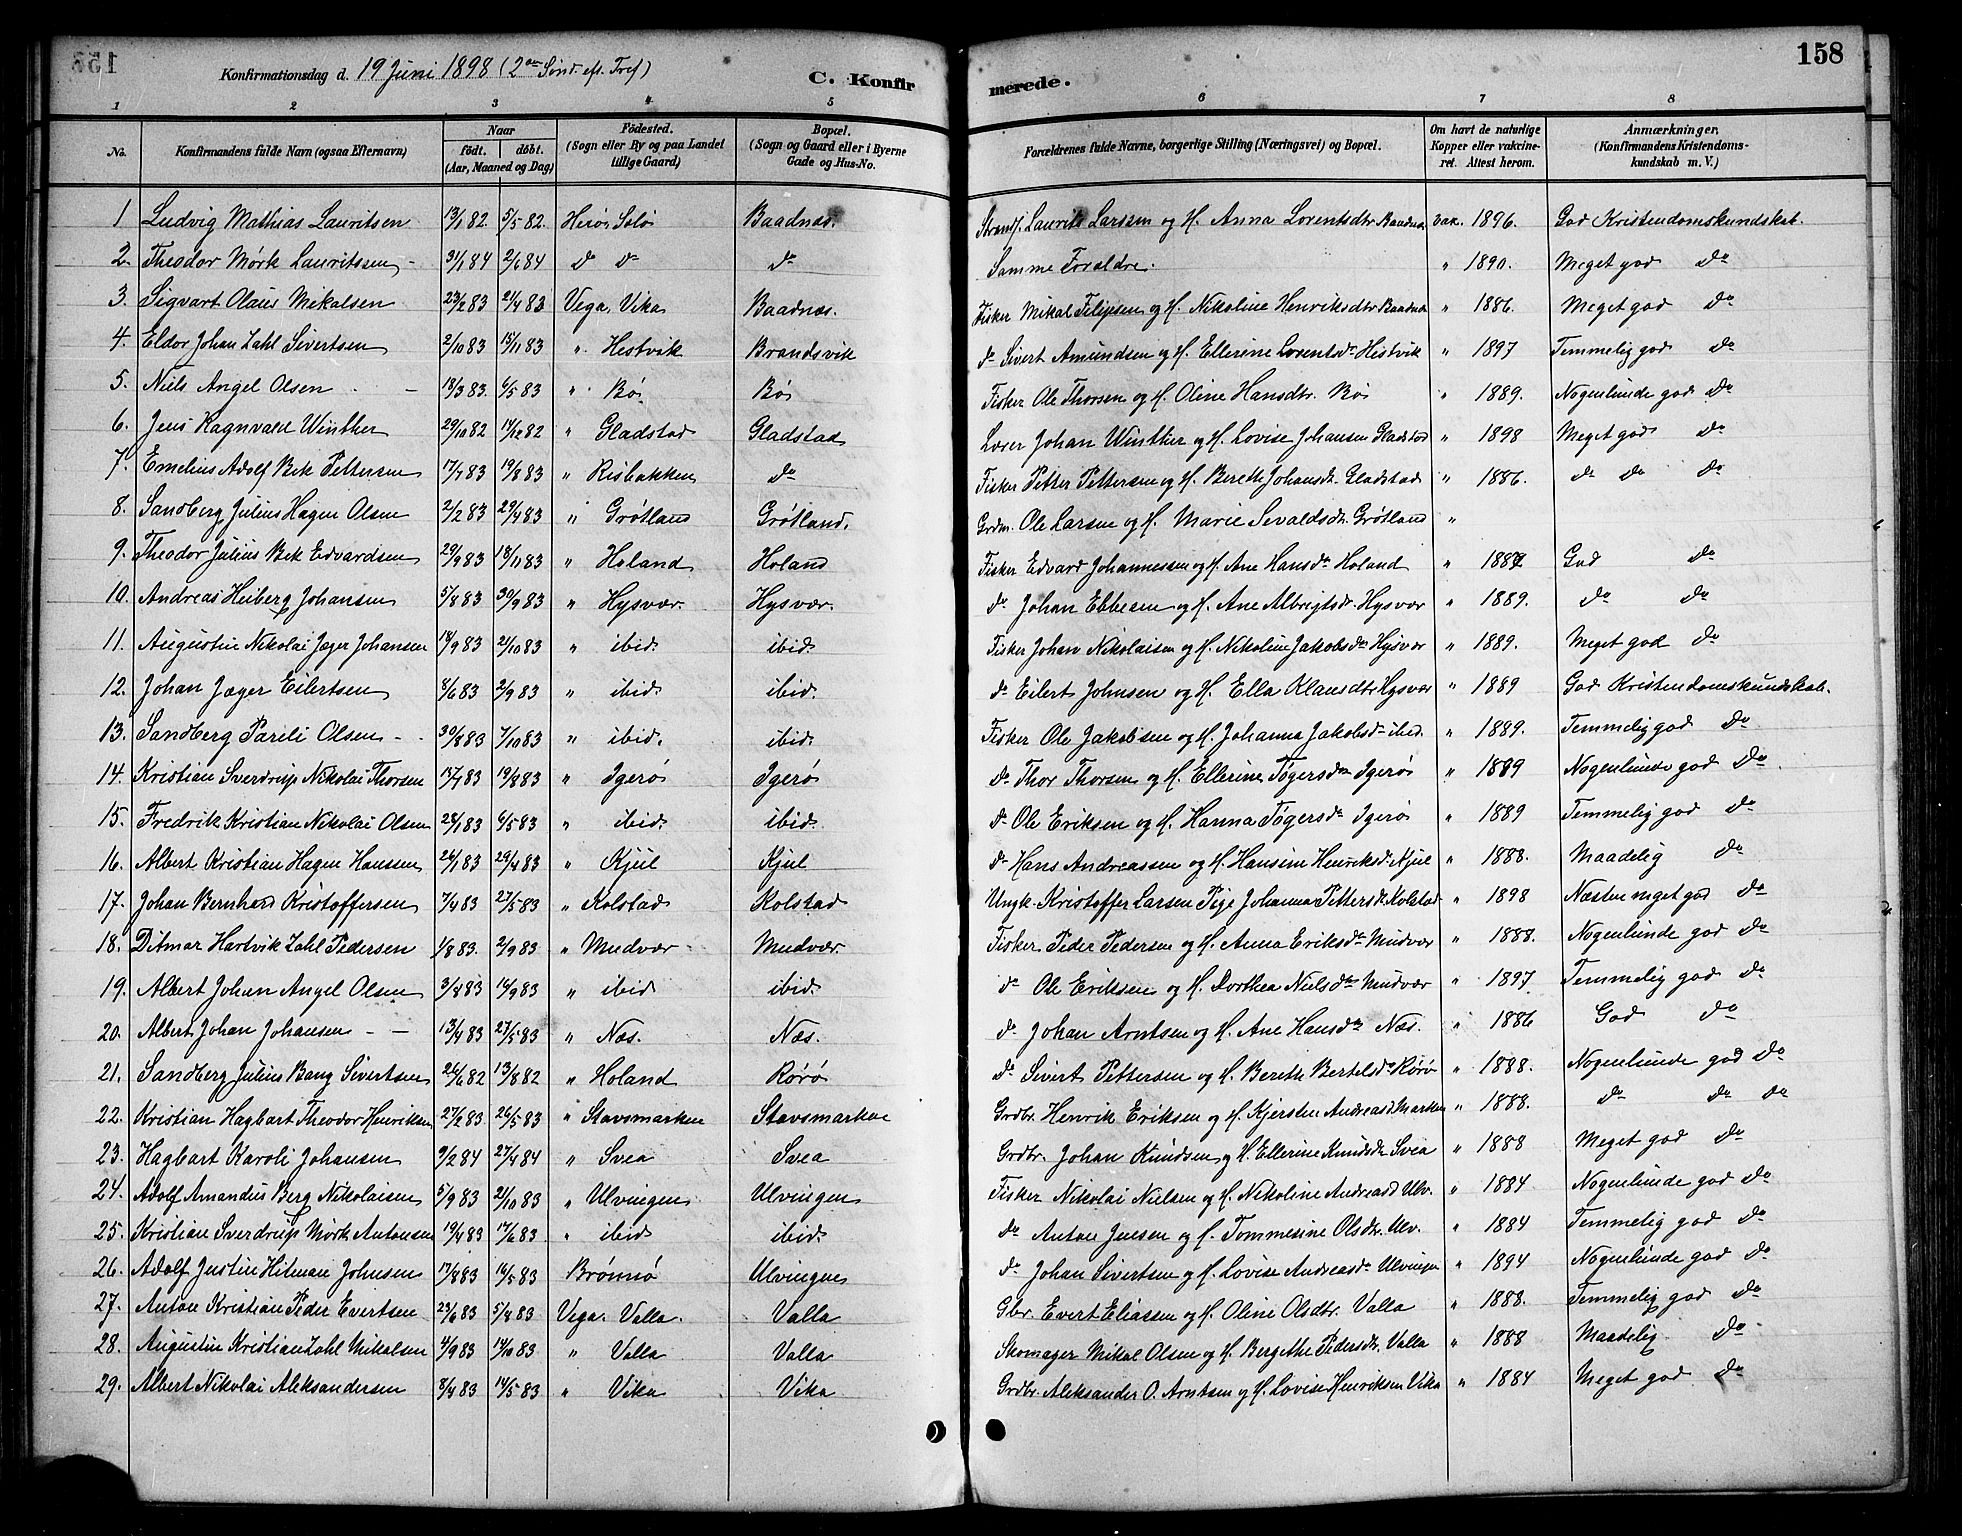 158
Konfirmationsdag d. 19 Juni 1898 (2den Sønd. eft. Tref)
C. Konfirmerede.
1 2 3 4 5 6 7 8
No. Konfirmandens fulde Navn (ogsaa Efternavn) Naar født. døbt. (Aar, Maaned og Dag) Fødested. (Sogn eller By og paa Landet tillige Gaard) Bopæl. (Sogn og Gaard eller i Byerne Gade og Hus-No. Forældrenes fulde Navne, borgerlige Stilling (Næringsvei) og Bopæl. Om havt de naturlige Kopper eller vakcineret. Attest herom. Anmærkninger. (Konfirmandens Kristendomskundskab m. V.)
1 Ludvig Mathias Lauritsen 13/1 82. 5/5 82. Herø, Solø Baadnæs. Strands. Laurits Larssen og H. Anna Lorentsdtr Baadnæs vax. 1896. God Kristendomskundskab.
2. Theodor Mørk Lauritssen - 31/1 84 2/6 84 do do do Samme Forældre. " 1890. Meget god do
3. Sigvart Olaus Mikalsen 23/2 83 2/4 83 Vega, Vika Baadnæs. Fisker Mikal Filipsen og H. Nikoline Henriksdtr Baadnæs " 1886. Meget god do
4. Eldor Johan Zahl Sivertsen 2/10 83 15/11 83 " Hestvik Brandsvik do Sivert Amundsen og H. Ellerine Lorentsdr Hestvik " 1897 Temmelig god do
5. Niels Angel Olsen - 18/3 83. 6/5 83 " Bø Bø Fisker Ole Thorsen og H. Oline Hansdtr. Bø " 1889. Nogenlunde god do
6. Jens Ragnvald Winther 29/10 82 14/12 82 " Gladstad Gladstad Lærer Johan Winther og H. Lovise Johansen Gladstad " 1898 Meget god do
7. Emelius Adolf Bek Pettersen 17/7 83 19/8 83 " Risbakken do Fisker Petter Pettersen og H. Berethe Johansdr. Gladstad " 1886. do do do
8. Sandberg Julius Hagen Olsen 2/2 83 29/4 83 " Grøtland Grøtland. Grdm. Ole Larsen og H. Marie Sevaldsdr. Grøtland "
9. Theodor Julius Bek Edvardsen 29/9 83 18/11 83 " Holand Holand Fisker Edvard Johannessen og H. Ane Hansdr Holand " God do
10. Andreas Heiberg Johansen 5/8 83 30/9 83 " Hysvær. Hysvær. do Johan Ebbesen og H. Ane Albrigtsdr. Hysvær " 1889. do do
11. Augustin Nikolai Jæger Johansen 18/9 83 21/10 83 " ibid. ibid. Fisker Johan Nikolaisen og H. Nikoline Jakobsdr Hysvær " 1889. Meget god do
12. Johan Jæger Eilertsen 8/6 83 2/9 83 " ibid. ibid. do Eilert Johnsen og H. Ella Klausdtr Hysvær " 1889 God Kristendomskundskab.
13. Sandberg Pareli Olsen - - 30/8 83 7/10 83 " ibid. ibid. Fisker Ole Jakobsen og H. Johanna Jakobsd- ibid. " 1889. Temmelig god do
14. Kristian Sverdrup Nikolai Thorsen 17/7 83 19/8 83 " Igerø Igerø do Thor Thorsen og H. Ellerine Tøgersdr Igerø " 1889 Nogenlunde god do
15. Fredrik Kristian Nikolai Olsen 28/1 83 6/5 83 " ibid. ibid. do Ole Eriksen og H. Hanna Tøgersdr Igerø " 1889 Temmelig god do
16. Albert Kristian Hagen Hanssen 26/1 83 29/4 83 " Kjul Kjul do Hans Andreassen og H. Hansine Henriksdr. Kjul " 1888. Maadelig do
17. Johan Bernhard Kristoffersen 7/4 83 27/5 83 " Kolstad Kolstad Ungk. Kristoffer Larsen Pige Johanna Pettersdr. Kolstad " 1898 Næsten meget god do
18. Ditmar Hartvik Zahl Pedersen 1/8 83. 2/9 83 " Mudvær Mudvær. Fisker Peder Pedersen og H. Anna Eriksdr Mudvær " 1888. Nogenlunde god do
19. Albert Johan Angel Olsen 3/8 83 16/9 83 " ibid ibid. do Ole Eriksen og H. Dorthea Nielsdr Mudvær " 1897 Temmelig god do
20. Albert Johan Johansen - - 13/4 83 27/5 83 " Næs. Næs. do Johan Arntsen og H. Ane Hansdr Næs. " 1886 God do
21. Sandberg Julius Bang Sivertsen 26/6 82 13/8 82 " Holand Rørø do Sivert Pettersen og H. Berethe Bertelsdr Rørø " 1888. Nogenlunde god do
22. Kristian Hagbart Theodor Henriksen 27/2 83 26/5 83 " Stavsmarken Stavsmarken Grdbr. Henrik Eriksen og H. Kjersten Andreasd Marken " 1888. do do do
23. Hagbart Karoli Johansen 9/2 84 27/4 84 " Svea Svea Grdbr. Johan Knudsen og H. Ellerine Knudsdr Svea " 1888 Meget god do
24. Adolf Amandus Berg Nikolaisen 5/9 83 21/10 83 " Ulvingen Ulvingen Fisker Nikolai Nielsen og H. Nikoline Andreasd Ulv. " 1884 Nogenlunde god do
25. Kristian Sverdrup Mørk Antonsen 19/4 83 17/6 83 " ibid ibid. do Anton Jensen og H. Tommesine Olsdtr. Ulv. " 1884 Temmelig god do
26. Adolf Justin Hilman Johnsen 17/3 83 14/5 83 Brønnø Ulvingen do Johan Sivertsen og H. Lovise Andreasdr Ulvingen " 1894 Nogenlunde god do
27. Anton Kristian Peder Evertsen 23/6 83 5/8 83 Vega. Valla. Valla Gbr. Evert Eliassen og H. Oline Olsdtr. Valla " 1888. Temmelig god do
28. Augustin Kristian Zahl Mikalsen 4/9 83 14/10 83 " Valla Valla Skomager Mikal Olsen og H. Bergethe Pedersdtr. Valla " 1888 Maadelig do
29. Albert Nikolai Aleksandersen 8/4 83 14/5 83 " Vika Vika Grdbr. Aleksander O. Arntsen og H. Lovise Henriksen Vika " 1884 Meget god do